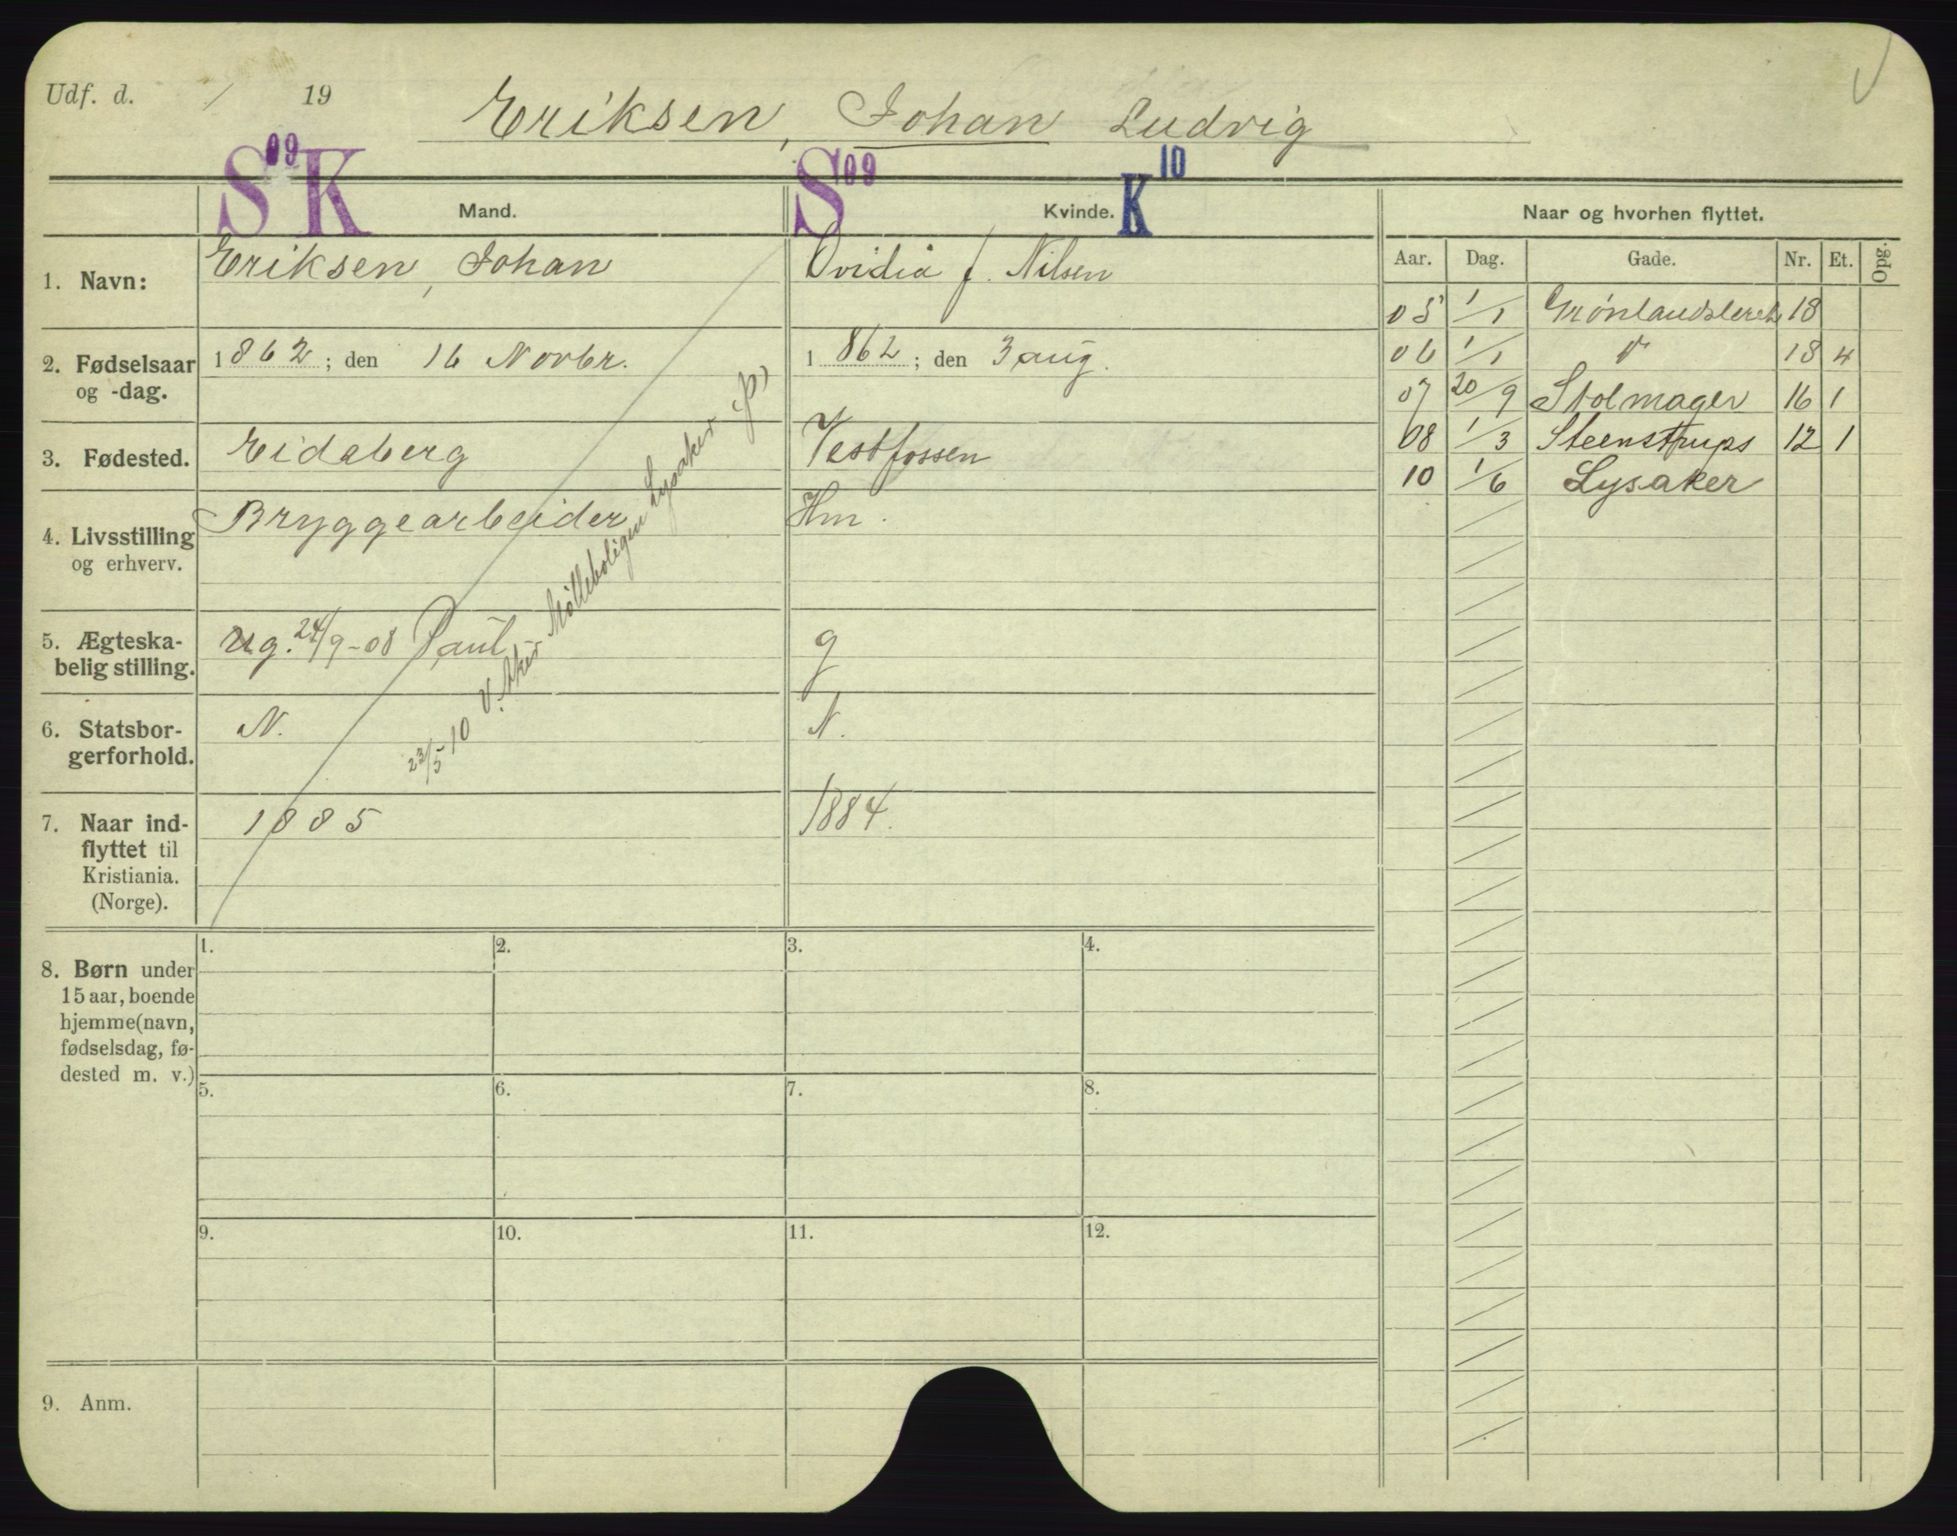 Udf. d. / 19
Eriksen, Johan Ludvig
S 09 K S 09 K 10
Mand. Kvinde. Naar og hvorhen flyttet.
Aar. Dag. Gade. Nr. Et. Opg.
1. Navn: Eriksen, Johan Ovidia f. Nilsen
05 1/1 Grønlandsleret 18
2. Fødselsaar og -dag. 1862; den 16 Novbr. 1862; den 3 aug.
06 1/1 " 18 4
07 20/9 Stolmager 16 1
3. Fødested. Eidsberg Vestfossen
08 1/3 Steenstrups 12 1
10 1/6 Lysaker
4. Livsstilling og erhverv. Bryggearbeider Hm.
5. Ægteska-
belig stilling. ug. 24/9-08 Paul g
23/5-10 V. Aker Mölleboligen Lysaker
6. Statsbor-
gerforhold. N. N.
7. Naar ind-
flyttet til
Kristiania.
(Norge). 1885 1884.
8. Børn under
15 aar, boende
hjemme (navn,
fødselsdag, fø-
dested m. v.)
1. 2. 3. 4.
5. 6. 7. 8.
9. 10. 11. 12.
9. Anm.